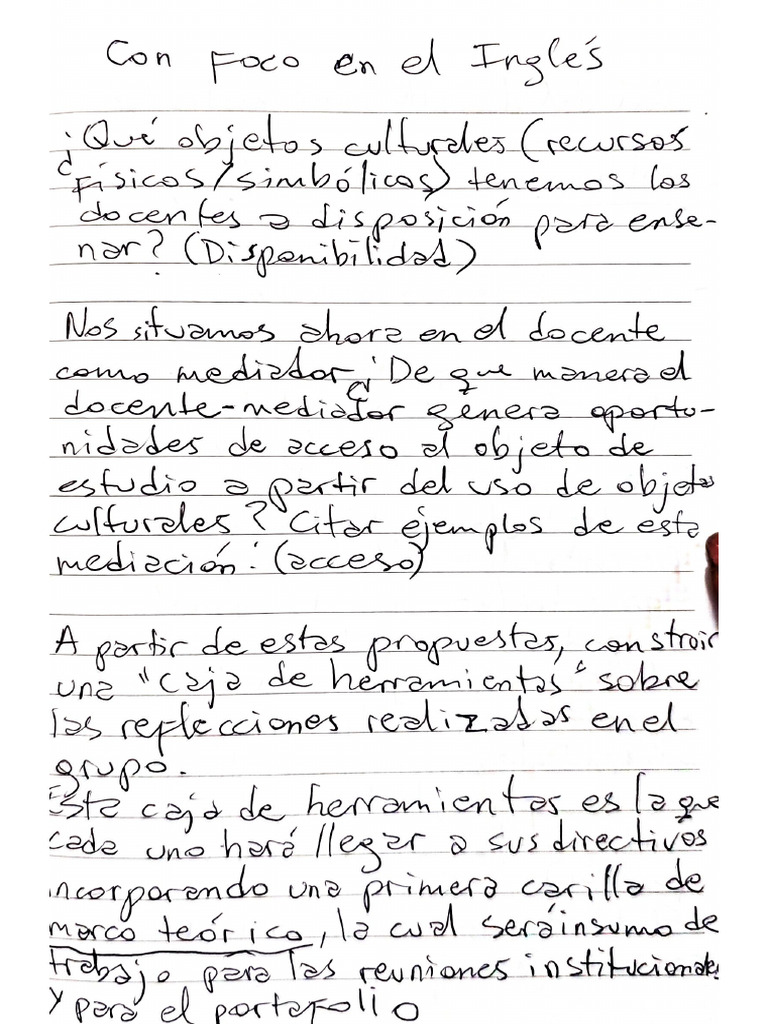 Con Foco en el Inglés
¿Qué objetos culturales (recursos
físicos/simbólicos) tenemos los
docentes a disposición para ense-
nar? (Disponibilidad)
Nos situamos ahora en el docente
como mediador ¿De que manera el
docente-mediador genera oportu-
nidades de acceso al objeto de
estudio a partir del uso de objetos
culturales? Citar ejemplos de esta
mediación: (acceso)
A partir de estas propuestas, construir
una "caja de herramientas" sobre
las reflecciones realizadas en el
grupo.
Esta caja de herramientas es la que
cada uno hará llegar a sus directivos
incorporando una primera carilla de
marco teórico, la cual será insumo de
trabajo para las reuniones institucionales
y para el portafolio